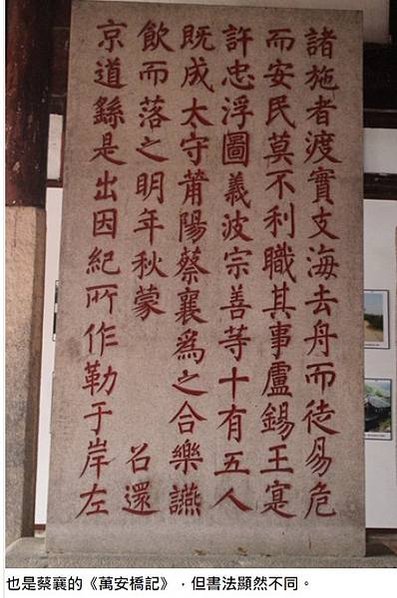 諸施者渡實支海去舟而徒易危
而安民莫不利職其事盧錫王寔
許忠浮圖義波宗善等十有五人
既成太守莆陽蔡襄爲之合樂讌
飲而落之明年秋蒙 召還
京道繇是出因紀所作勒于岸左
也是蔡襄的《萬安橋記》，但書法顯然不同。